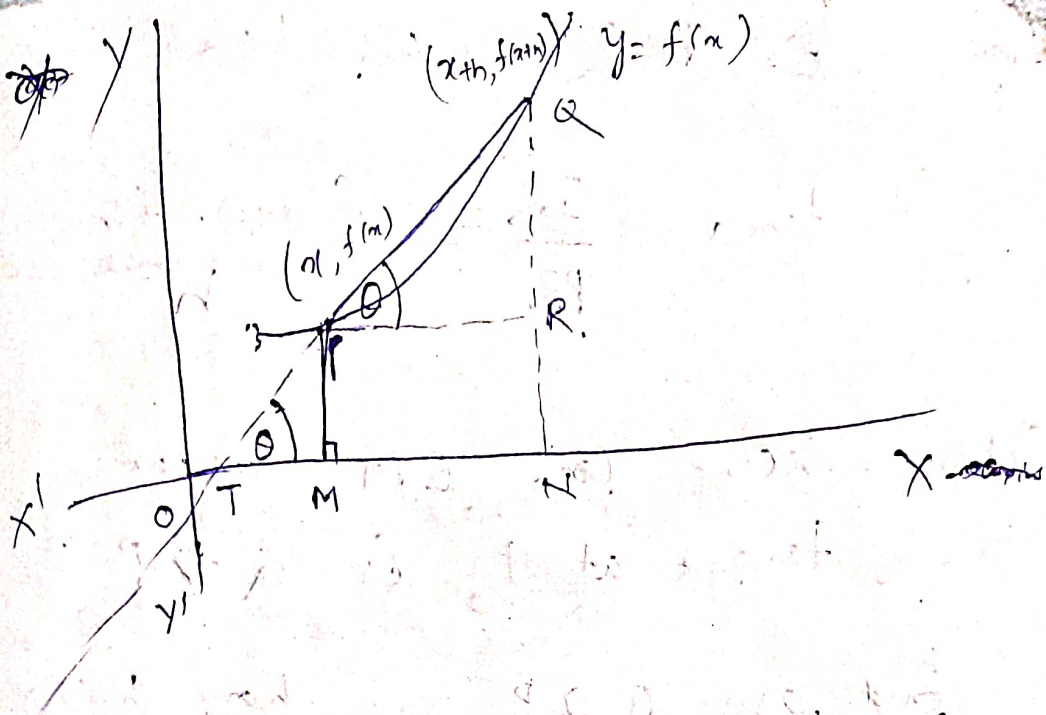 Y
(x+h, f(x+h))
y = f(x)
Q
(x, f(x))
θ
R
P
θ
X'
O
T
M
N
X
Y'